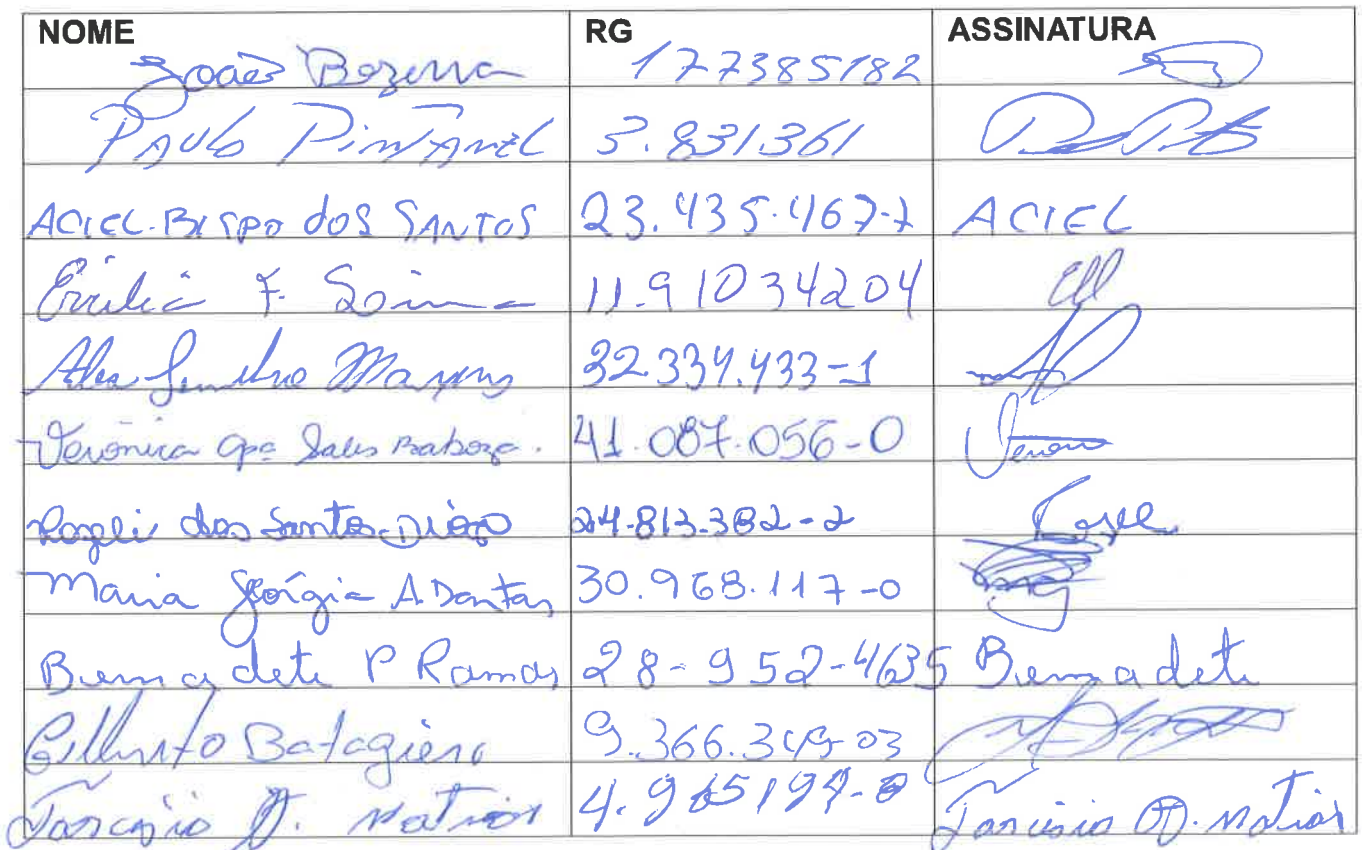 NOME RG ASSINATURA
João Bezerra 177385182
PAULO PINTANEL 3.831.361
ACIEL BISPO dOS SANTOS 23.435.467-7 ACIEL
F. 11.91034204
32.334.433-1
Verônica Apa Sales Barboza. 41.087.056-0
Rozeli dos Santos Dias 24.813.382-2 Rozeli
Maria Georgia A Dantas 30.968.117-0
Bernadete P Ramos 28-952-4635 Bernadete
Gilberto Batagiero 9.366.349-03
Tarcísio A. Matias Tarcisio A. Matias